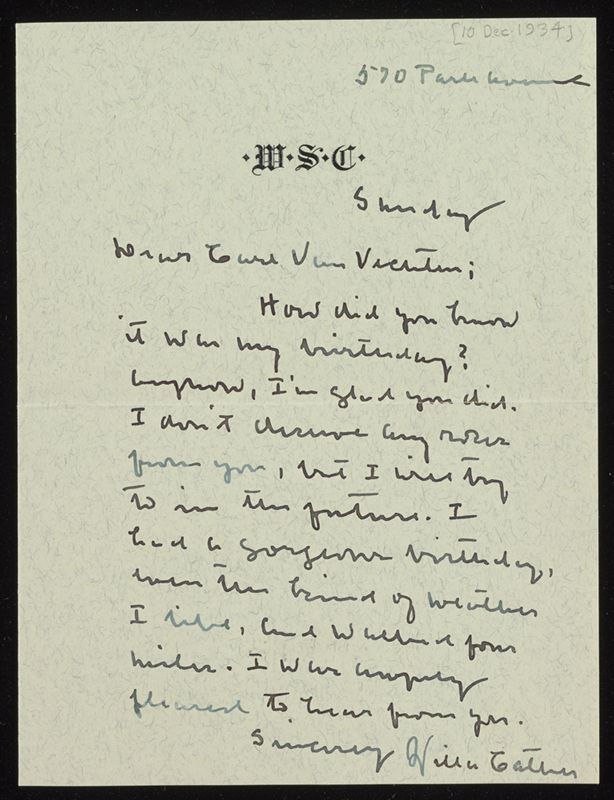 [10 Dec. 1934]
570 Park Avenue
·W·S·C·
Sunday
Dear Carl Van Vechten;
How did you know
it was my birthday?
Anyhow, I'm glad you did.
I don't deserve any roses
from you, but I will try
to in the future. I
had a gorgeous birthday,
with the kind of weather
I like, and walked four
miles. I was awfully
pleased to hear from you.
Sincerely Willa Cather